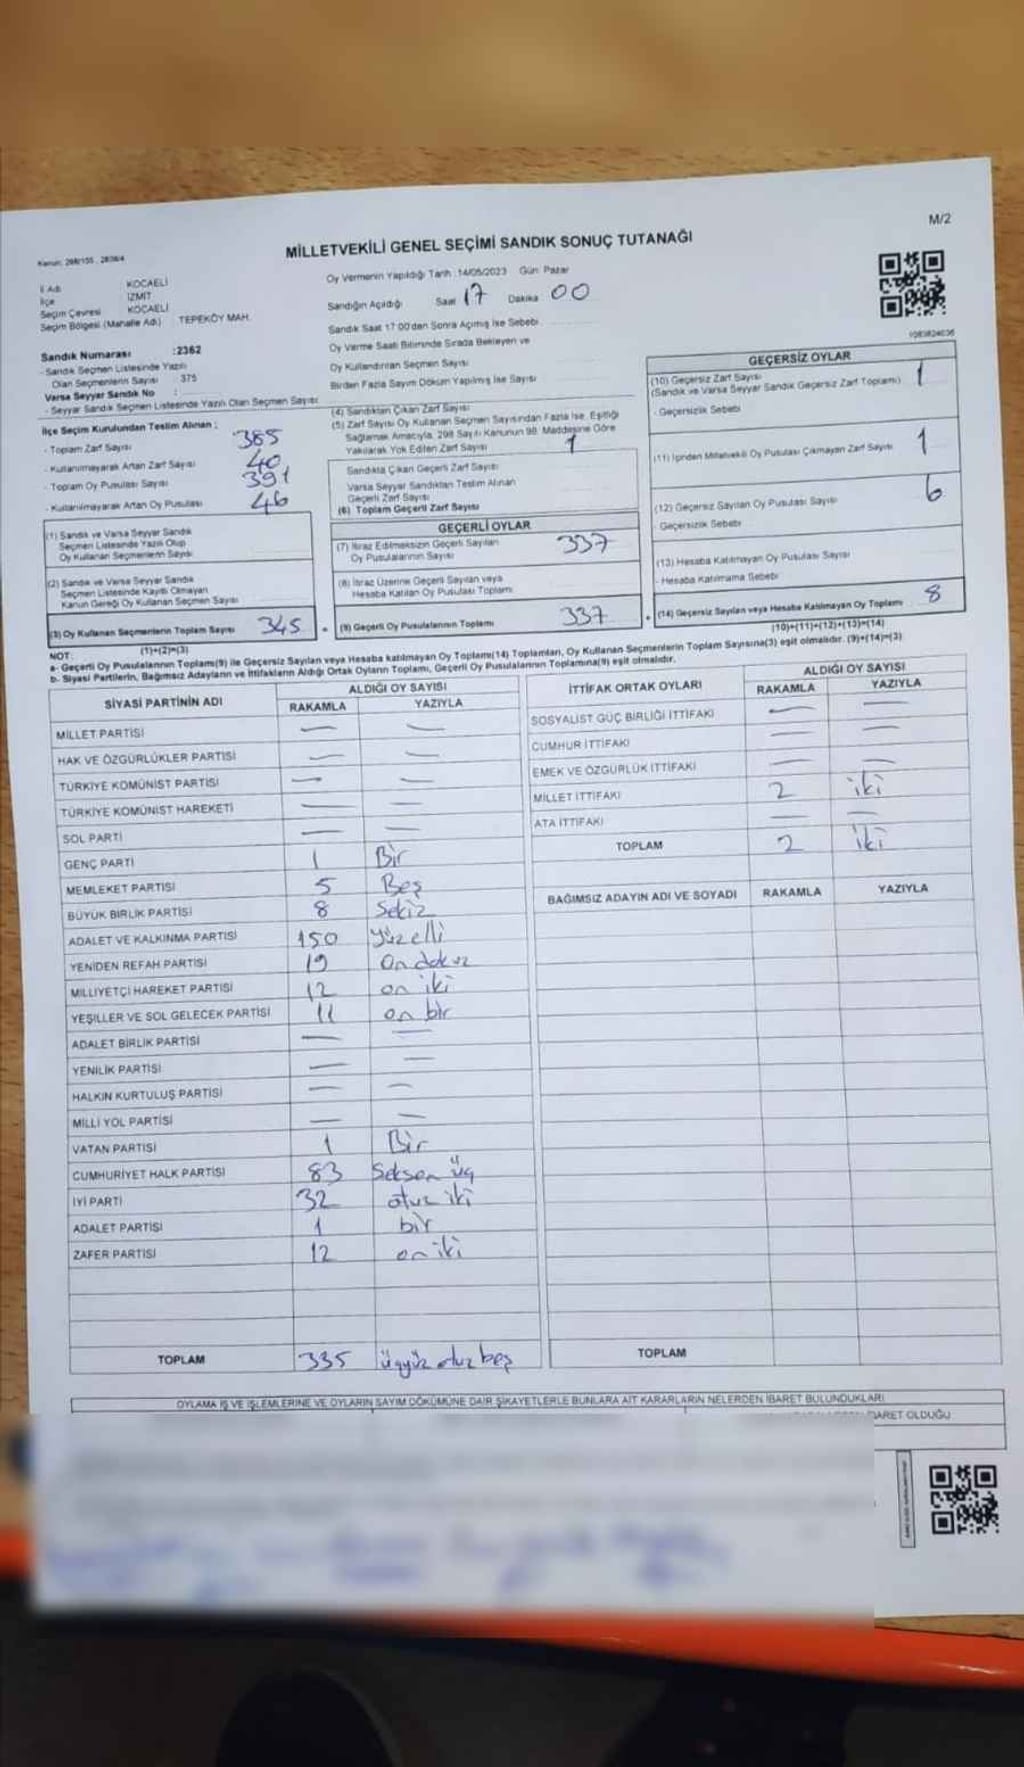 M/2
MİLLETVEKİLİ GENEL SEÇİMİ SANDIK SONUÇ TUTANAĞI
İl Adı KOCAELİ
İlçe İZMİT
Seçim Çevresi KOCAELİ
Seçim Bölgesi (Mahalle Adı) TEPEKÖY MAH.
Oy Vermenin Yapıldığı Tarih :14/05/2023 Gün: Pazar
Sandığın Açıldığı Saat 17 Dakika 00
Sandık Saat 17:00'den Sonra Açmış İse Sebebi
Oy Verme Saati Bitiminde Sırada Bekleyen ve
Oy Kullandırılan Seçmen Sayısı
Birden Fazla Sayım Döküm Yapılmış İse Sayısı
Sandık Numarası :2362
- Sandık Seçmen Listesinde Yazılı
Olan Seçmenlerin Sayısı : 375
Varsa Seyyar Sandık No :
- Seyyar Sandık Seçmen Listesinde Yazılı Olan Seçmen Sayısı
İlçe Seçim Kurulundan Teslim Alınan :
- Toplam Zarf Sayısı 385
- Kullanılmayarak Artan Zarf Sayısı 40
- Toplam Oy Pusulası Sayısı 391
- Kullanılmayarak Artan Oy Pusulası 46
(1) Sandık ve Varsa Seyyar Sandık
Seçmen Listesinde Yazılı Olup
Oy Kullanan Seçmenlerin Sayısı
(2) Sandık ve Varsa Seyyar Sandık
Seçmen Listesinde Kayıtlı Olmayan
Kanun Gereği Oy Kullanan Seçmen Sayısı
(3) Oy Kullanan Seçmenlerin Toplam Sayısı 345
(1)+(2)=(3)
(4) Sandıktan Çıkan Zarf Sayısı
(5) Zarf Sayısı Oy Kullanan Seçmen Sayısından Fazla İse, Eşitliği
Sağlamak Amacıyla, 298 Sayılı Kanunun 98. Maddesine Göre
Yakılarak Yok Edilen Zarf Sayısı 1
Sandıkta Çıkan Geçerli Zarf Sayısı
Varsa Seyyar Sandıktan Teslim Alınan
Geçerli Zarf Sayısı
(6) Toplam Geçerli Zarf Sayısı
GEÇERLİ OYLAR
(7) İtiraz Edilmeksizin Geçerli Sayılan
Oy Pusulalarının Sayısı 337
(8) İtiraz Üzerine Geçerli Sayılan veya
Hesaba Katılan Oy Pusulası Toplamı
(9) Geçerli Oy Pusulalarının Toplamı 337
GEÇERSİZ OYLAR
(10) Geçersiz Zarf Sayısı 1
(Sandık ve Varsa Seyyar Sandık Geçersiz Zarf Toplamı)
- Geçersizlik Sebebi
(11) İçinden Milletvekili Oy Pusulası Çıkmayan Zarf Sayısı 1
(12) Geçersiz Sayılan Oy Pusulası Sayısı 6
- Geçersizlik Sebebi
(13) Hesaba Katılmayan Oy Pusulası Sayısı
- Hesaba Katılmama Sebebi
(14) Geçersiz Sayılan veya Hesaba Katılmayan Oy Toplamı 8
(10)+(11)+(12)+(13)=(14)
NOT:
a- Geçerli Oy Pusulalarının Toplamı(9) ile Geçersiz Sayılan veya Hesaba katılmayan Oy Toplamı(14) Toplamları, Oy Kullanan Seçmenlerin Toplam Sayısına(3) eşit olmalıdır. (9)+(14)=(3)
b- Siyasi Partilerin, Bağımsız Adayların ve İttifakların Aldığı Ortak Oyların Toplamı, Geçerli Oy Pusulalarının Toplamına(9) eşit olmalıdır.
SİYASİ PARTİNİN ADI ALDIĞI OY SAYISI
RAKAMLA YAZIYLA
MİLLET PARTİSİ — —
HAK VE ÖZGÜRLÜKLER PARTİSİ — —
TÜRKİYE KOMÜNİST PARTİSİ — —
TÜRKİYE KOMÜNİST HAREKETİ — —
SOL PARTİ — —
GENÇ PARTİ 1 Bir
MEMLEKET PARTİSİ 5 Beş
BÜYÜK BİRLİK PARTİSİ 8 Sekiz
ADALET VE KALKINMA PARTİSİ 150 yüzelli
YENİDEN REFAH PARTİSİ 19 on dokuz
MİLLİYETÇİ HAREKET PARTİSİ 12 on iki
YEŞİLLER VE SOL GELECEK PARTİSİ 11 on bir
ADALET BİRLİK PARTİSİ — —
YENİLİK PARTİSİ — —
HALKIN KURTULUŞ PARTİSİ — —
MİLLİ YOL PARTİSİ — —
VATAN PARTİSİ 1 Bir
CUMHURİYET HALK PARTİSİ 83 Seksen üç
İYİ PARTİ 32 otuz iki
ADALET PARTİSİ 1 bir
ZAFER PARTİSİ 12 on iki
TOPLAM 335 üçyüz otuz beş
İTTİFAK ORTAK OYLARI ALDIĞI OY SAYISI
RAKAMLA YAZIYLA
SOSYALİST GÜÇ BİRLİĞİ İTTİFAKI — —
CUMHUR İTTİFAKI — —
EMEK VE ÖZGÜRLÜK İTTİFAKI — —
MİLLET İTTİFAKI 2 iki
ATA İTTİFAKI — —
TOPLAM 2 iki
BAĞIMSIZ ADAYIN ADI VE SOYADI RAKAMLA YAZIYLA
TOPLAM
OYLAMA İŞ VE İŞLEMLERİNE VE OYLARIN SAYIM DÖKÜMÜNE DAİR ŞİKAYETLERLE BUNLARA AİT KARARLARIN NELERDEN İBARET BULUNDUKLARI
OLDUĞU